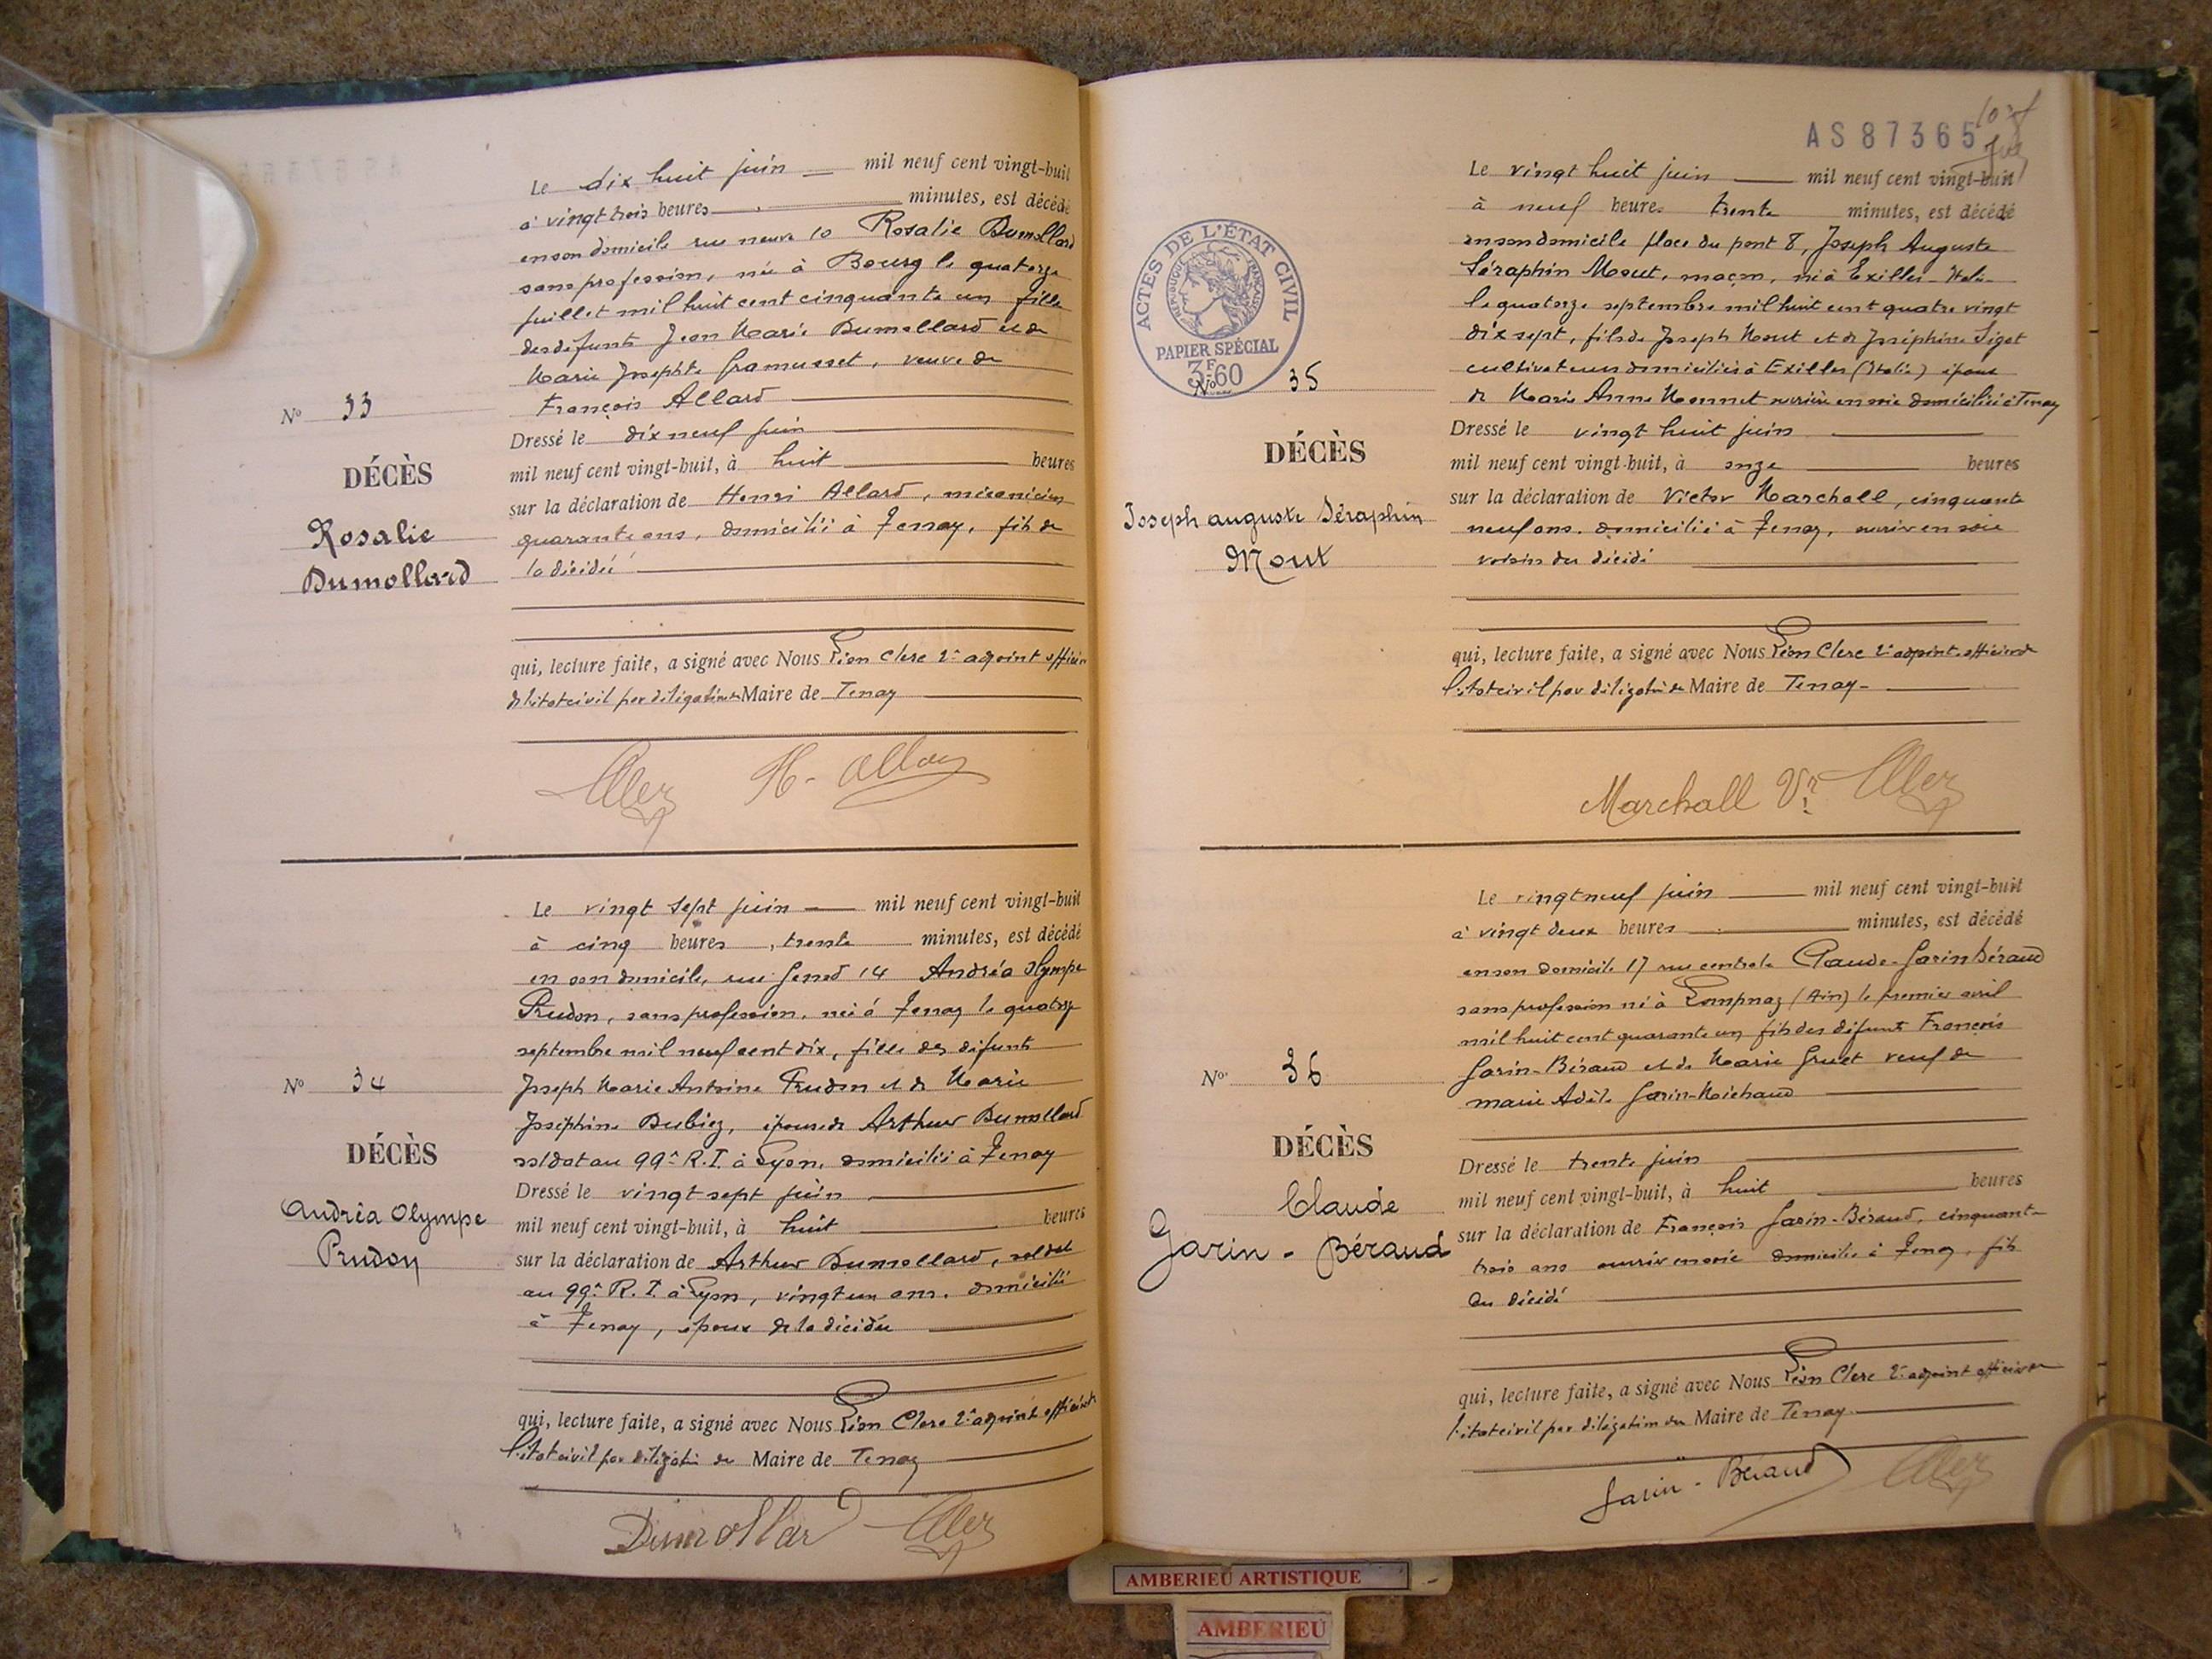 Le dix huit juin mil neuf cent vingt-huit
à vingt trois heures minutes, est décédé
en son domicile rue neuve 10 Rosalie Dumollard
sans profession, née à Bourg le quatorze
juillet mil huit cent cinquante un fille
des défunts Jean Marie Dumollard et de
Marie Josephte Gramusset, veuve de
François Allard
Nº 33
DÉCÈS
Rosalie
Dumollard
Dressé le dix neuf juin
mil neuf cent vingt-huit, à huit heures
sur la déclaration de Henri Allard, mécanicien
quarante ans, domicilié à Tenay, fils de
la décédée
qui, lecture faite, a signé avec Nous Léon Clerc 2e adjoint officier
de l'état civil par délégation du Maire de Tenay
Clerc H. Allard
Le vingt sept juin mil neuf cent vingt-huit
à cinq heures, trente minutes, est décédé
en son domicile, rue Genod 14 Andréa Olympe
Prudon, sans profession, née à Tenay le quatorze
septembre mil neuf cent dix, fille des défunts
Joseph Marie Antoine Prudon et de Marie
Joséphine Dubiez, épouse de Arthur Dumollard
soldat au 99e R.I. à Lyon, domicilié à Tenay
Nº 34
DÉCÈS
Andréa Olympe
Prudon
Dressé le vingt sept juin
mil neuf cent vingt-huit, à huit heures
sur la déclaration de Arthur Dumollard, soldat
au 99e R.I. à Lyon, vingt un ans, domicilié
à Tenay, époux de la décédée
qui, lecture faite, a signé avec Nous Léon Clerc 2e adjoint officier de
l'état civil par délégation du Maire de Tenay
Dumollard Clerc
AS87365
Le vingt huit juin mil neuf cent vingt-huit
à neuf heures trente minutes, est décédé
en son domicile place du pont 8, Joseph Auguste
Séraphin Mout, maçon, né à Exilles Italie
le quatorze septembre mil huit cent quatre vingt
dix sept, fils de Joseph Mout et de Joséphine Siget
cultivateurs domiciliés à Exilles (Italie) époux
de Marie Anne Monnet ouvrière en soie domiciliée à Tenay
ACTES DE L'ÉTAT CIVIL
RÉPUBLIQUE FRANÇAISE
PAPIER SPÉCIAL
3F60
Nº 35
DÉCÈS
Joseph auguste Séraphin
Mout
Dressé le vingt huit juin
mil neuf cent vingt-huit, à onze heures
sur la déclaration de Victor Marchall, cinquante
neuf ans, domicilié à Tenay, ouvrier en soie
voisin du décédé
qui, lecture faite, a signé avec Nous Léon Clerc 2e adjoint officier de
l'état civil par délégation du Maire de Tenay
Marchall Vr Clerc
Le vingt neuf juin mil neuf cent vingt-huit
à vingt deux heures minutes, est décédé
en son domicile 17 rue centrale Claude Garin Béraud
sans profession né à Lompnaz (Ain) le premier avril
mil huit cent quarante un fils des défunts François
Garin-Béraud et de Marie Gruet veuf de
marie Adèle Garin-Michaud
Nº 36
DÉCÈS
Claude
Garin - Béraud
Dressé le trente juin
mil neuf cent vingt-huit, à huit heures
sur la déclaration de François Garin-Béraud, cinquante
trois ans ouvrier en soie domicilié à Tenay, fils
du décédé
qui, lecture faite, a signé avec Nous Léon Clerc 2e adjoint officier de
l'état civil par délégation du Maire de Tenay
Garin - Béraud Clerc
AMBERIEU ARTISTIQUE
AMBERIEU